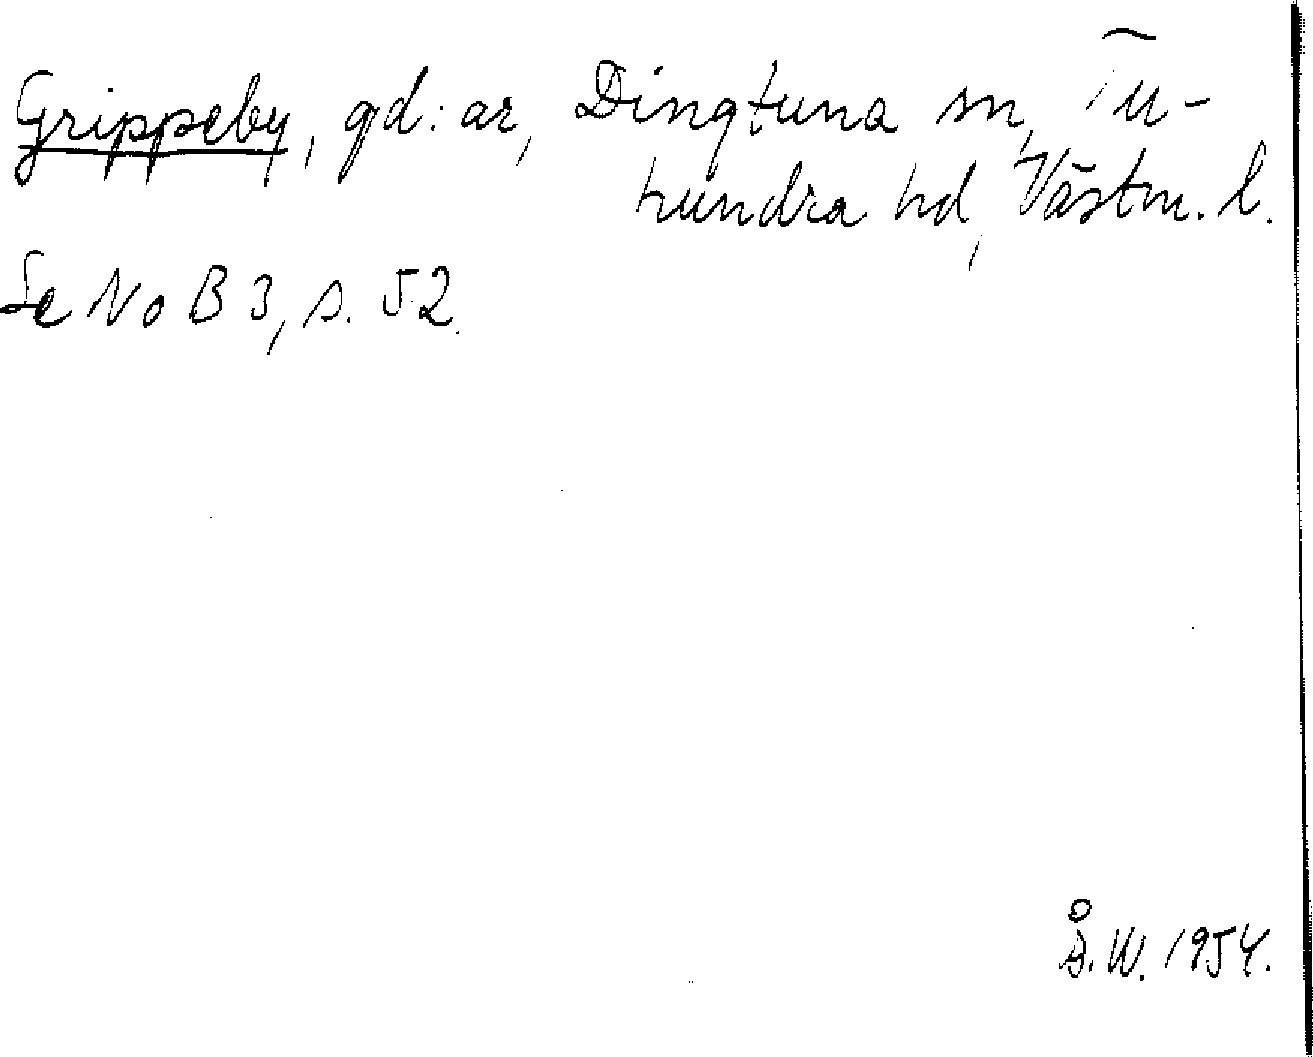 Grippeby, gd:ar, Dingtuna sn, Tu-
hundra hd, Västm. l.
Se NoB 3, s. 52.
Å.W. 1954.